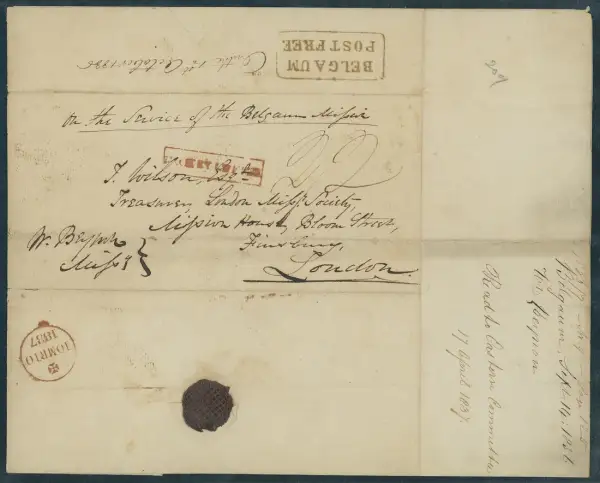 BELGAUM
POST FREE
On the Service of the Belgaum Mission
T. Wilson, Esqr
Treasurer, London Missy Society,
Mission House, Bloom Street,
Finsbury,
London
W. Beynon
Missy
10 MR 10
1837
Belgaum, Sept. 14, 1836
W. Beynon
Read to Eastern Committee
17 April 1837.